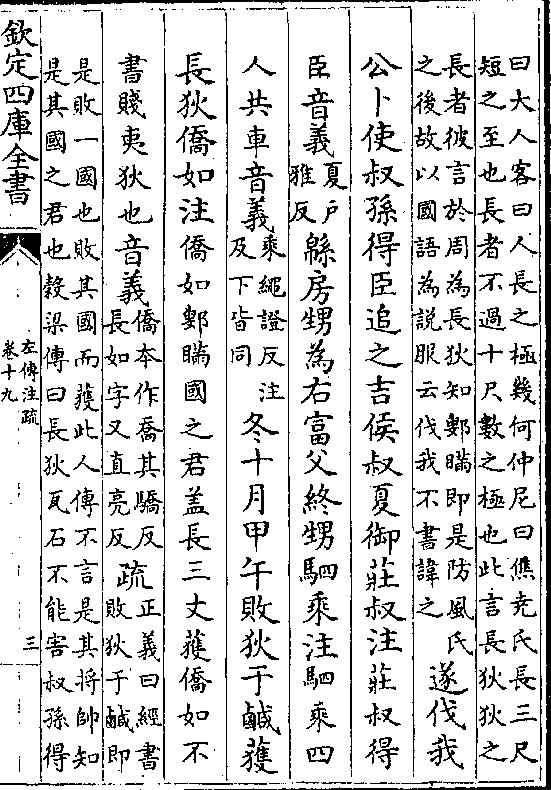 曰大人客曰人長之極幾何仲尼曰僬尭氏長三尺
短之至也長者不過十尺數之極也此言長狄狄之
長者彼言於周為長狄知鄋瞞即是防風氏
之後故以國語為説服云伐我不書諱之
遂伐我
公卜使叔孫得臣追之吉侯叔夏御莊叔注莊叔得
臣音義
夏戸
雅反
緜房甥為右富父終甥駟乘注駟乘四
人共車音義
乘繩證反注
及下皆同
冬十月甲午敗狄于鹹獲
長狄僑如注僑如鄋瞞國之君盖長三丈獲僑如不
書賤夷狄也音義
僑本作喬其驕反
長如字又直亮反
疏
正義曰經書
敗狄于鹹即
是敗一國也敗其國而獲此人傳不言是其將帥知
是其國之君也穀梁傳曰長狄瓦石不能害叔孫得
欽定四庫全書
左傳注疏
卷十九
三